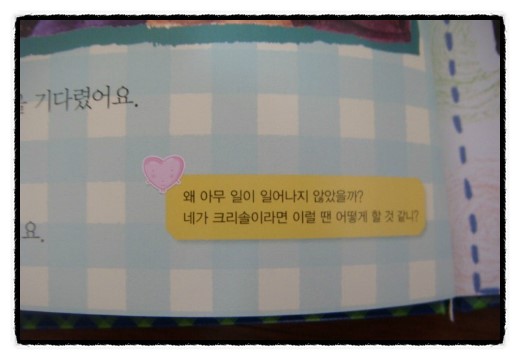 기다렸어요.
왜 아무 일이 일어나지 않았을까?
네가 크리솔이라면 이럴 땐 어떻게 할 것 같니?
요.